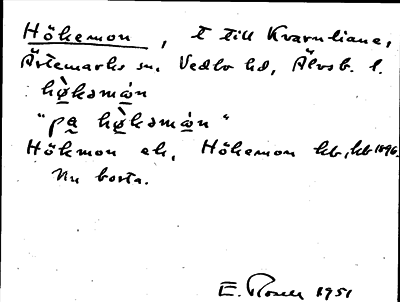 Hökemon, t till Kvarnliane,
Ärtemarks sn, Vedbo hd, Älvsb. l.
hø̀kəmȯ̀n
"pa hø̀kəmȯ̀n"
Hökmon ek, Hökemon hb, kb 1896.
Nu borta.
E. Rosell 1951